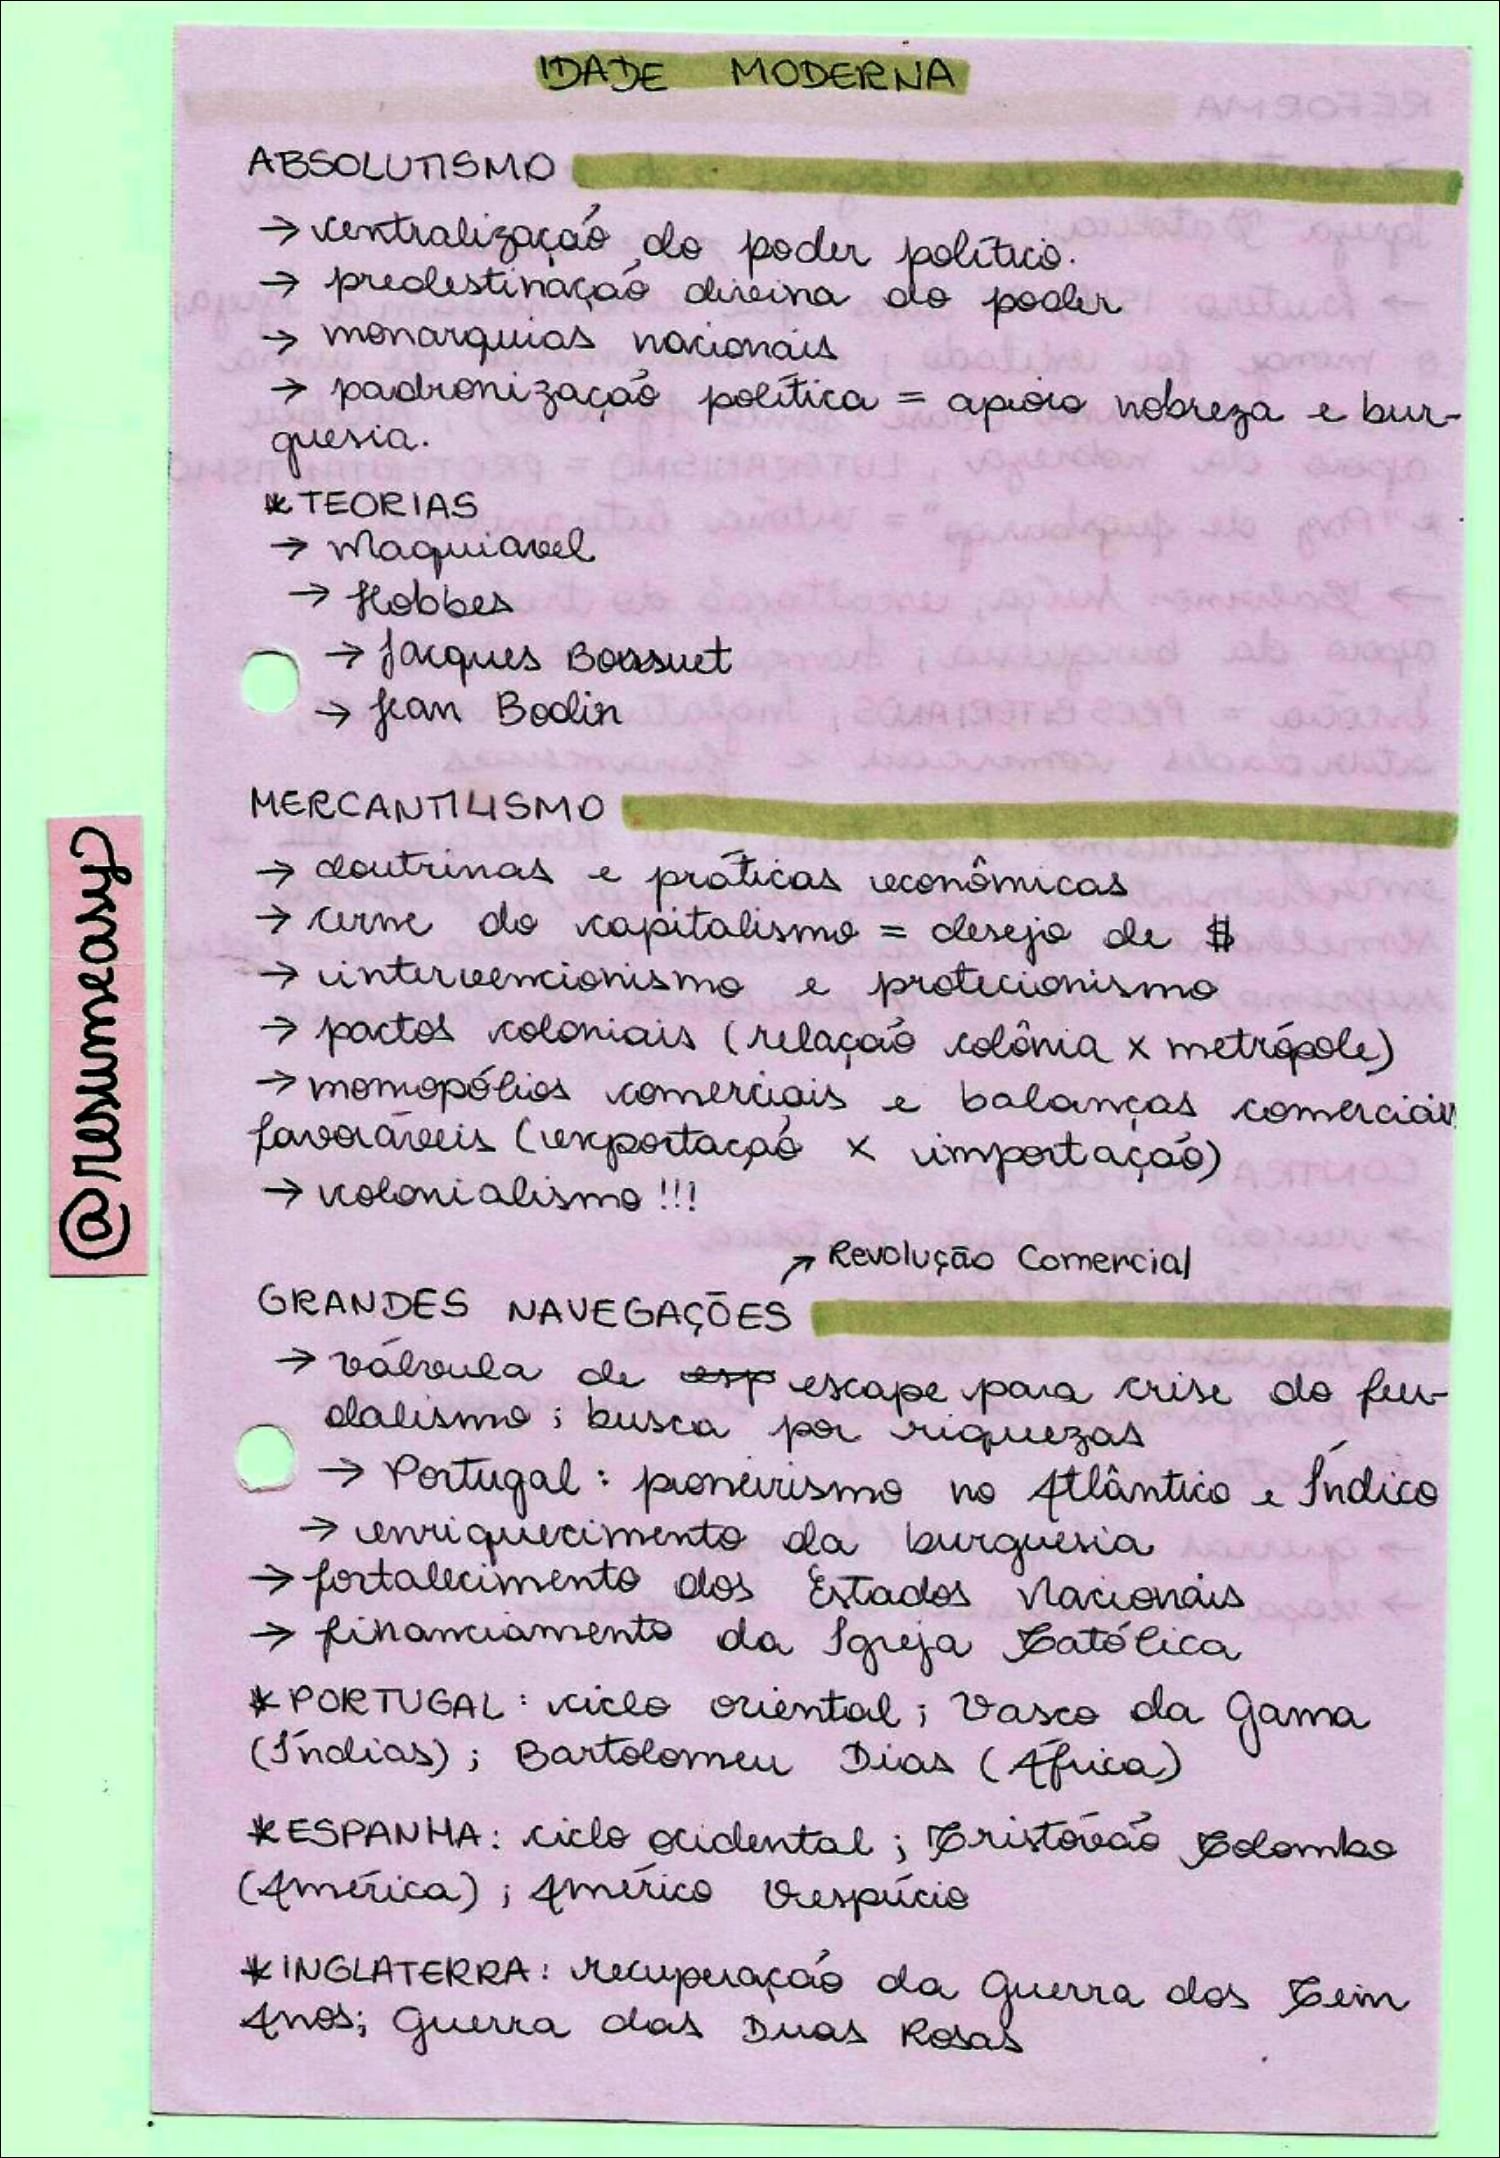 IDADE MODERNA
ABSOLUTISMO
→ centralização do poder político.
→ predestinação divina do poder
→ monarquias nacionais
→ padronização política = apoio nobreza e bur-
guesia.
* TEORIAS
→ Maquiavel
→ Hobbes
→ Jacques Bossuet
→ Jean Bodin
MERCANTILISMO
→ doutrinas e práticas econômicas
→ cerne do capitalismo = desejo de $
→ intervencionismo e protecionismo
→ pactos coloniais (relação colônia x metrópole)
→ monopólios comerciais e balanças comerciais
favoráveis (exportação x importação)
→ colonialismo!!!
↗ Revolução Comercial
GRANDES NAVEGAÇÕES
→ válvula de esp escape para crise do feu-
dalismo; busca por riquezas
→ Portugal: pioneirismo no Atlântico e Índico
→ enriquecimento da burguesia
→ fortalecimento dos Estados Nacionais
→ financiamento da Igreja Católica
* PORTUGAL: ciclo oriental; Vasco da Gama
(Índias); Bartolomeu Dias (África)
* ESPANHA: ciclo ocidental; Cristóvão Colombo
(América); Américo Vespúcio
* INGLATERRA: recuperação da Guerra dos Cem
Anos; Guerra das Duas Rosas
@resumeasy